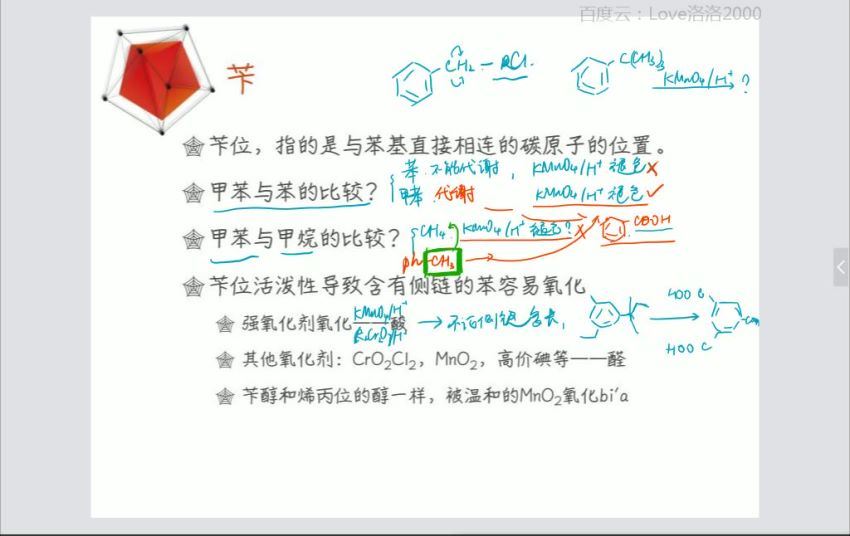 百度云：Love洛洛2000
苄
CH2
C(CH3)3
KMnO4/H+ ?
苄位，指的是与苯基直接相连的碳原子的位置。
苯 不能代谢，KMnO4/H+ 褪色 ×
甲苯与苯的比较？
甲苯 代谢 KMnO4/H+ 褪色 ✓
甲苯与甲烷的比较？
CH4 KMnO4/H+ 褪色? × COOH
ph-CH3
苄位活泼性导致含有侧链的苯容易氧化
强氧化剂氧化——酸
KMnO4/H+
K2CrO7/H+
→ 不论侧链多长，
HOOC
HOOC
其他氧化剂：CrO2Cl2，MnO2，高价碘等——醛
苄醇和烯丙位的醇一样，被温和的MnO2氧化bi'a